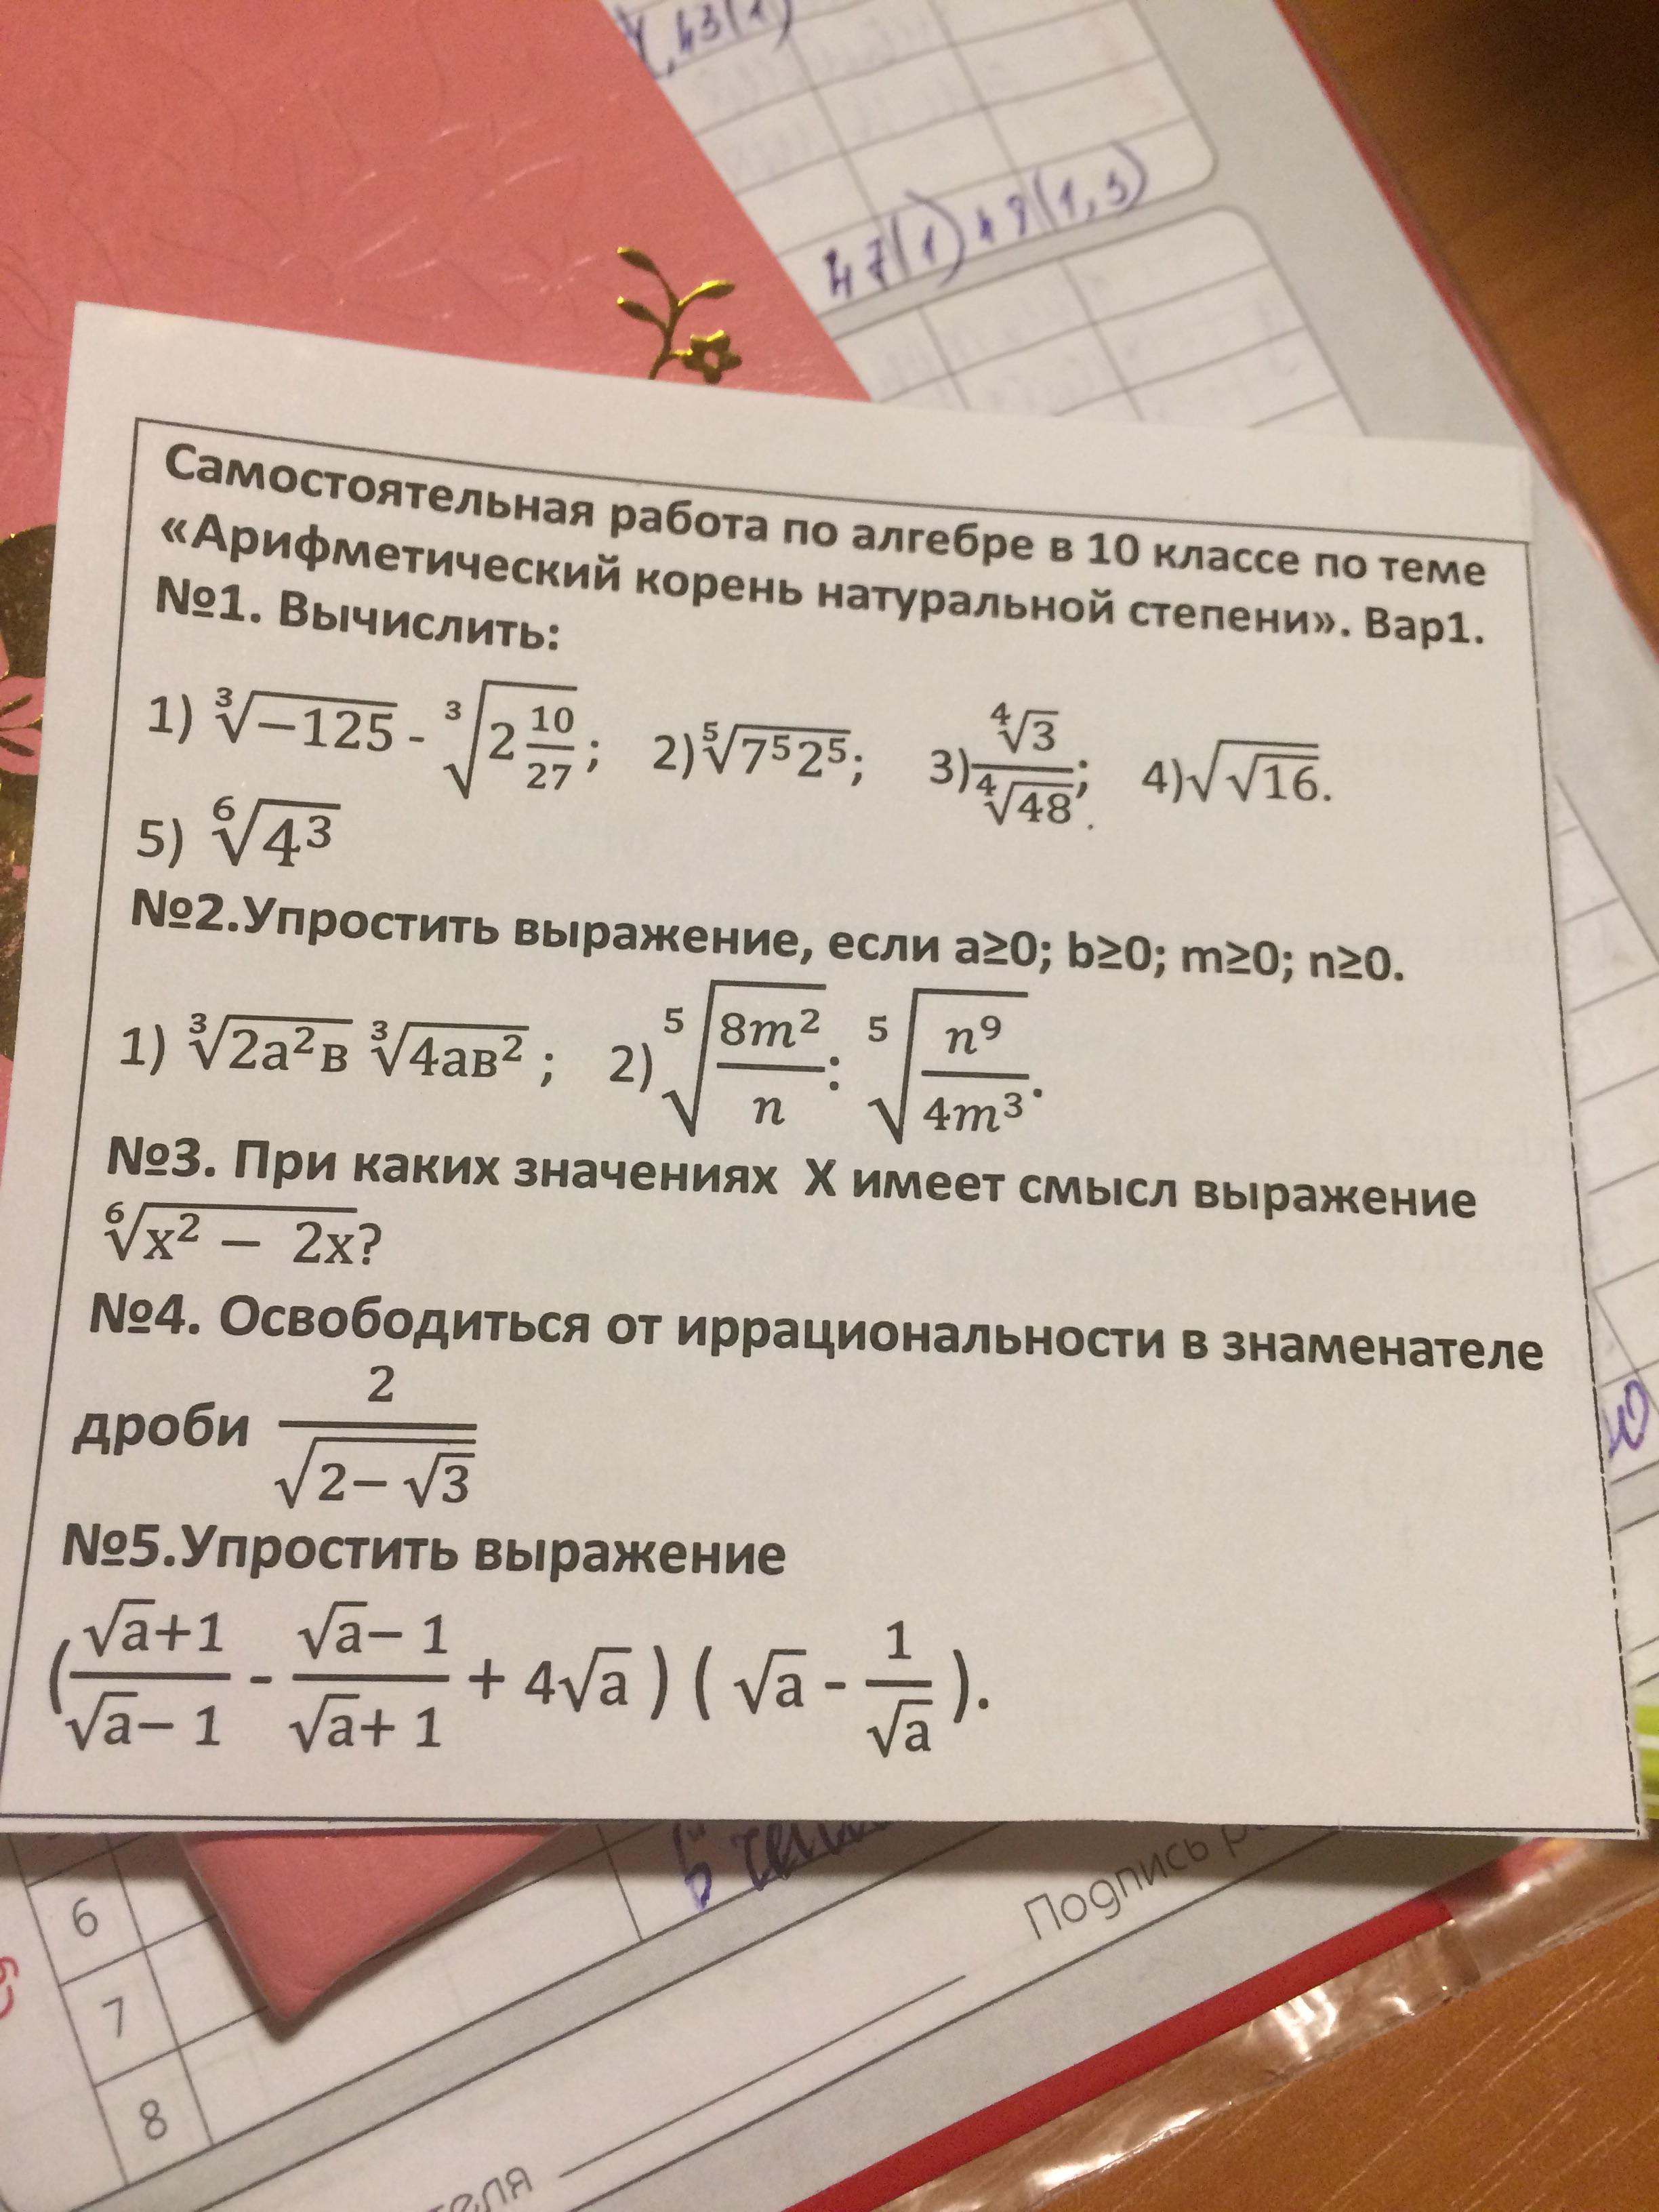 43(1)
47(1) 49(1,3)
Самостоятельная работа по алгебре в 10 классе по теме
«Арифметический корень натуральной степени». Вар1.
№1. Вычислить:
1) ∛(−125) - ∛(2 10/27); 2) ⁵√(7⁵2⁵); 3) ⁴√3/⁴√48; 4) √√16.
5) ⁶√(4³)
№2.Упростить выражение, если a≥0; b≥0; m≥0; n≥0.
1) ∛(2а²в) ∛(4ав²) ; 2) ⁵√(8m²/n) : ⁵√(n⁹/4m³).
№3. При каких значениях X имеет смысл выражение
⁶√(x² − 2x)?
№4. Освободиться от иррациональности в знаменателе
дроби 2/√(2− √3)
№5.Упростить выражение
((√a+1)/(√a− 1) - (√a− 1)/(√a+ 1) + 4√a ) ( √a - 1/√a ).
6
7
8
Подпись